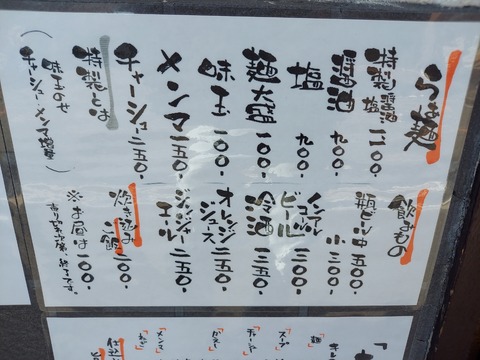 らぁ麺
特製 醤油 塩 一一〇〇.
醤油 九〇〇.
塩 九〇〇.
麺大盛 一〇〇.
味玉 一〇〇.
メンマ 一五〇.
チャーシュー 二五〇.
特製とは
味玉のせ
チャーシュー・メンマ増量
飲みもの
瓶ビール中 五〇〇.
小 三〇〇.
ノンアルコールビール 三〇〇.
冷酒 三五〇.
オレンジジュース 二五〇.
ジンジャーエール 二五〇.
炊き込みご飯 二〇〇.
※お昼は一〇〇.
売り切れ次第、終了です。
「スープ」
「チャーシュー」
「メンマ」